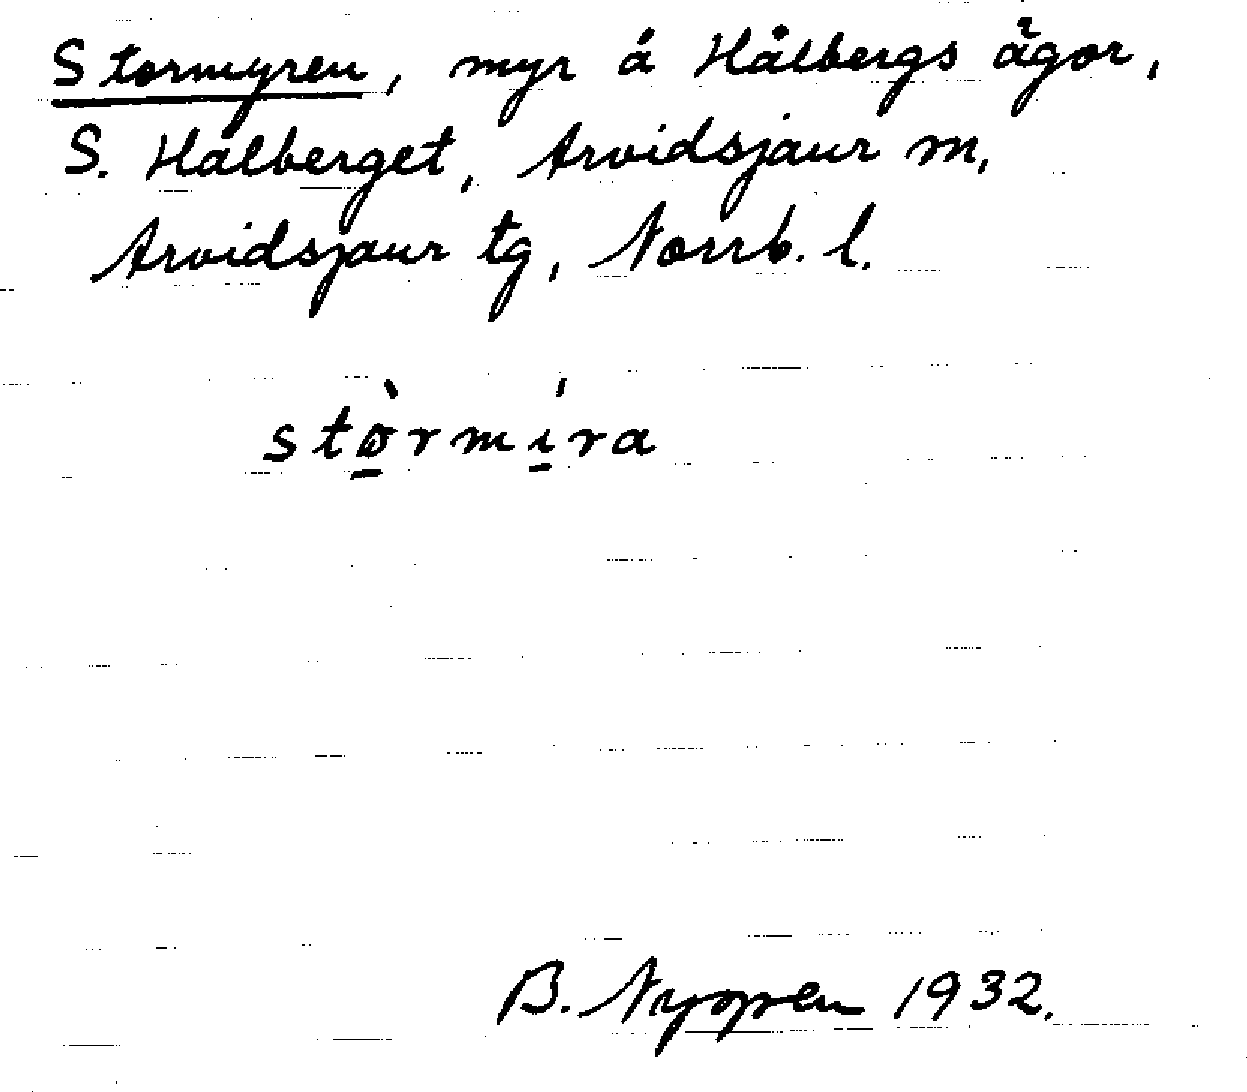 Stormyren, myr å Hålbergs ägor,
S. Hålberget, Arvidsjaur m,
Arvidsjaur tg, Norrb. l.
stø̱̀rmí̱ra
B. 1932.